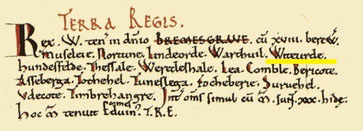 TERRA REGIS.
Rex. W. ten' in dn̄io BREMESGRAVE. cū xviii. berew.
Moseleie. Nortune. Lindeorde. Warthuil. Witeurde.
hundesfelde. Thessale. Weredeshale. Lea. Comble. Bericote.
Asseberga. Tothehel. Tuneslega. Focheberie. Suruehel.
Udecote. Timbrehangre. Int om̄s simul cū m̄. sunt .xxx. hidę.
hoc m̄ tenuit Eduin comes T.R.E.